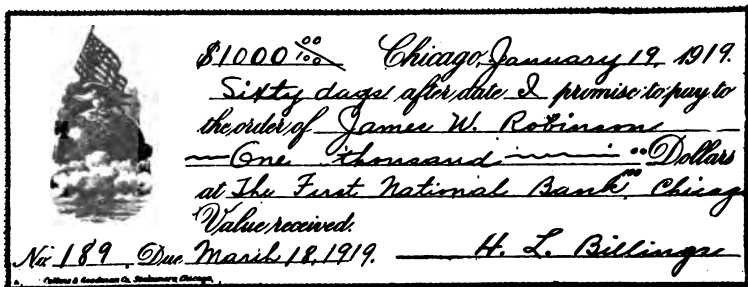 $1000 00/100 Chicago, January 19, 1919.
Sixty days after date I promise to pay to
the order of James W. Robinson
One thousand 00/100 Dollars
at The First National Bank, Chicag
Value received.
No. 189. Due March 18, 1919. H. L. Billings
Collins & Goodman Co. Stationers, Chicago.